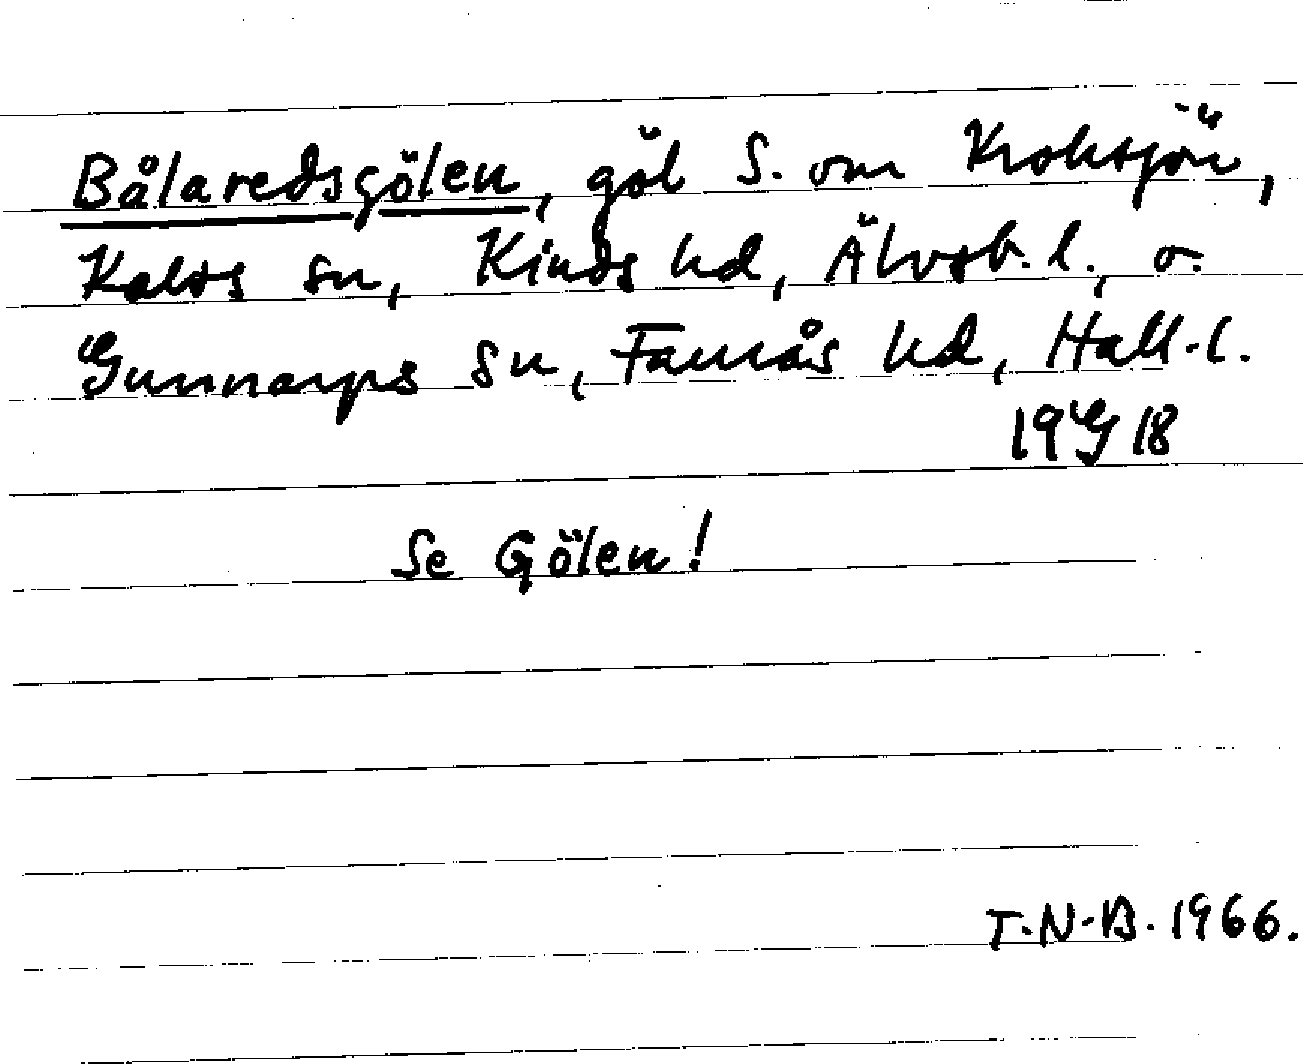 Bålaredsgölen, göl S. om Kroksjön,
Kalvs sn, Kinds hd, Älvsb. l., o.
Gunnarps sn, Faurås hd, Hall. l.
19G 18
Se Gölen!
T.N-B. 1966.